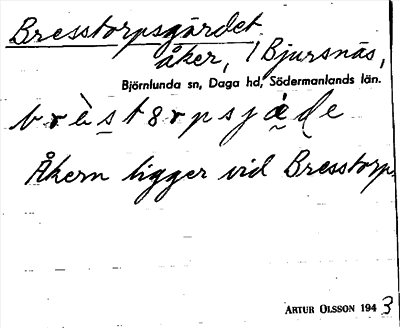 Bresstorpsgärdet
åker, / Bjursnäs,
Björnlunda sn, Daga hd, Södermanlands län.
Åkern ligger vid Bresstorp
ARTUR OLSSON 1943